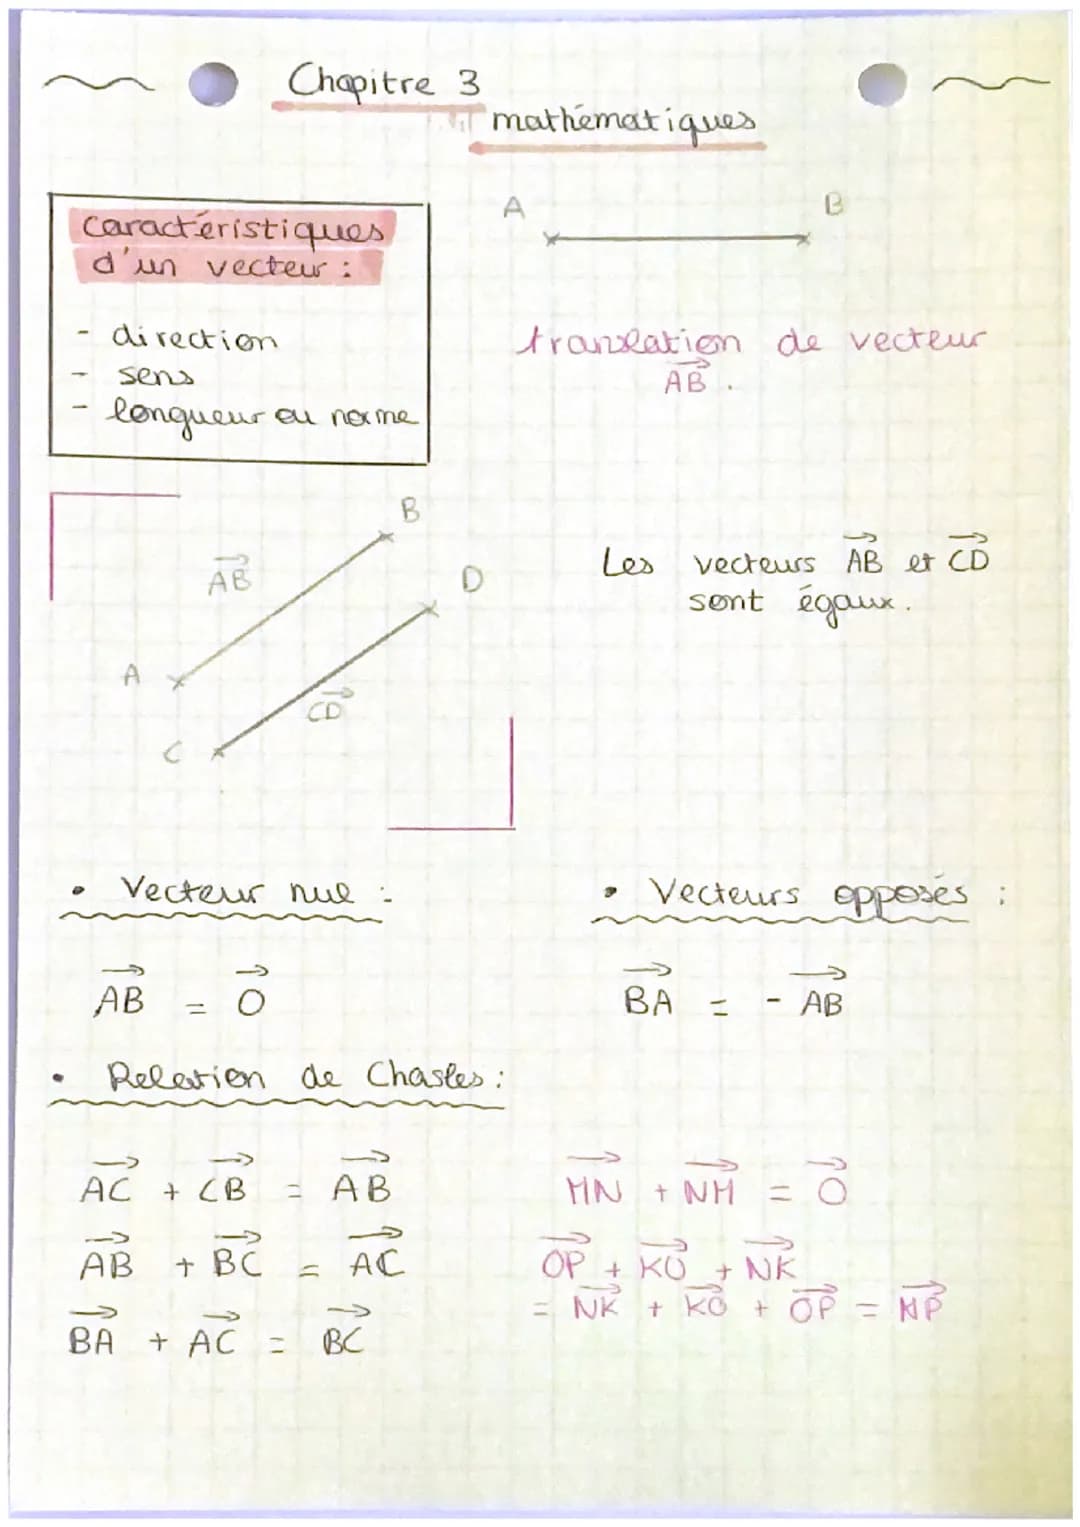 Chapitre 3
mathématiques
Caractéristiques
d'un vecteur :
- direction
- sens
- longueur ou norme
A B
translation de vecteur
AB .
B
AB
D
A
CD
C
Les vecteurs AB et CD
sont égaux.
• Vecteur nul :
AB = O
• Vecteurs opposés :
BA = - AB
• Relation de Chasles :
AC + CB = AB
AB + BC = AC
BA + AC = BC
MN + NM = O
OP + KO + NK
= NK + KO + OP = NP